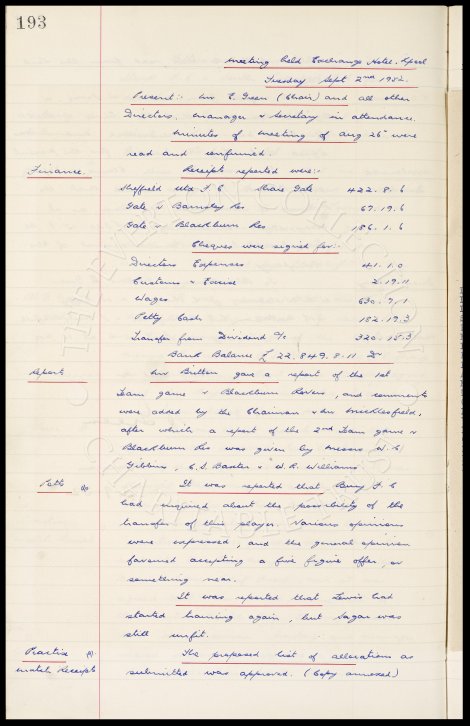 193
Meeting held Exchange Hotel. Lpool
Tuesday Sept 2nd 1952.
Present:- Mr E. Green (Chair) and all other
Directors. Manager & Secretary in attendance.
Minutes of meeting of Aug 26th were
read and confirmed.
Finance. Receipts reported were:-
Sheffield Utd F.C Share Gate 422.8.6
Gate v Barnsley Res 67.19.6
Gate v Blackburn Res 186.1.6
Cheques were signed for:-
Directors Expenses 41.1.0
Customs & Excise 2.19.11
Wages 630.7.1
Petty Cash 182.19.3
Transfer from Dividend a/c 320.15.3
Bank Balance £22,849.8.11 Dr
Report Mr Britton gave a report of the 1st
Team game v Blackburn Rovers, and comments
were added by the Chairman & Mr Micklesfield,
after which a report of the 2nd Team game v
Blackburn Res was given by Messrs W.C.
Gibbins, C.S. Baxter & W.R. Williams.
Potts It was reported that Bury F.C
had enquired about the possibility of the
transfer of this player. Various opinions
were expressed, and the general opinion
favoured accepting a five figure offer, or
something near.
It was reported that Lewis had
started training again, but Sagar was
still unfit.
Practice The proposed list of allocations as
match Receipts submitted was approved. (Copy annexed)
THE EVERTON COLLECTION
CHARITABLE TRUST